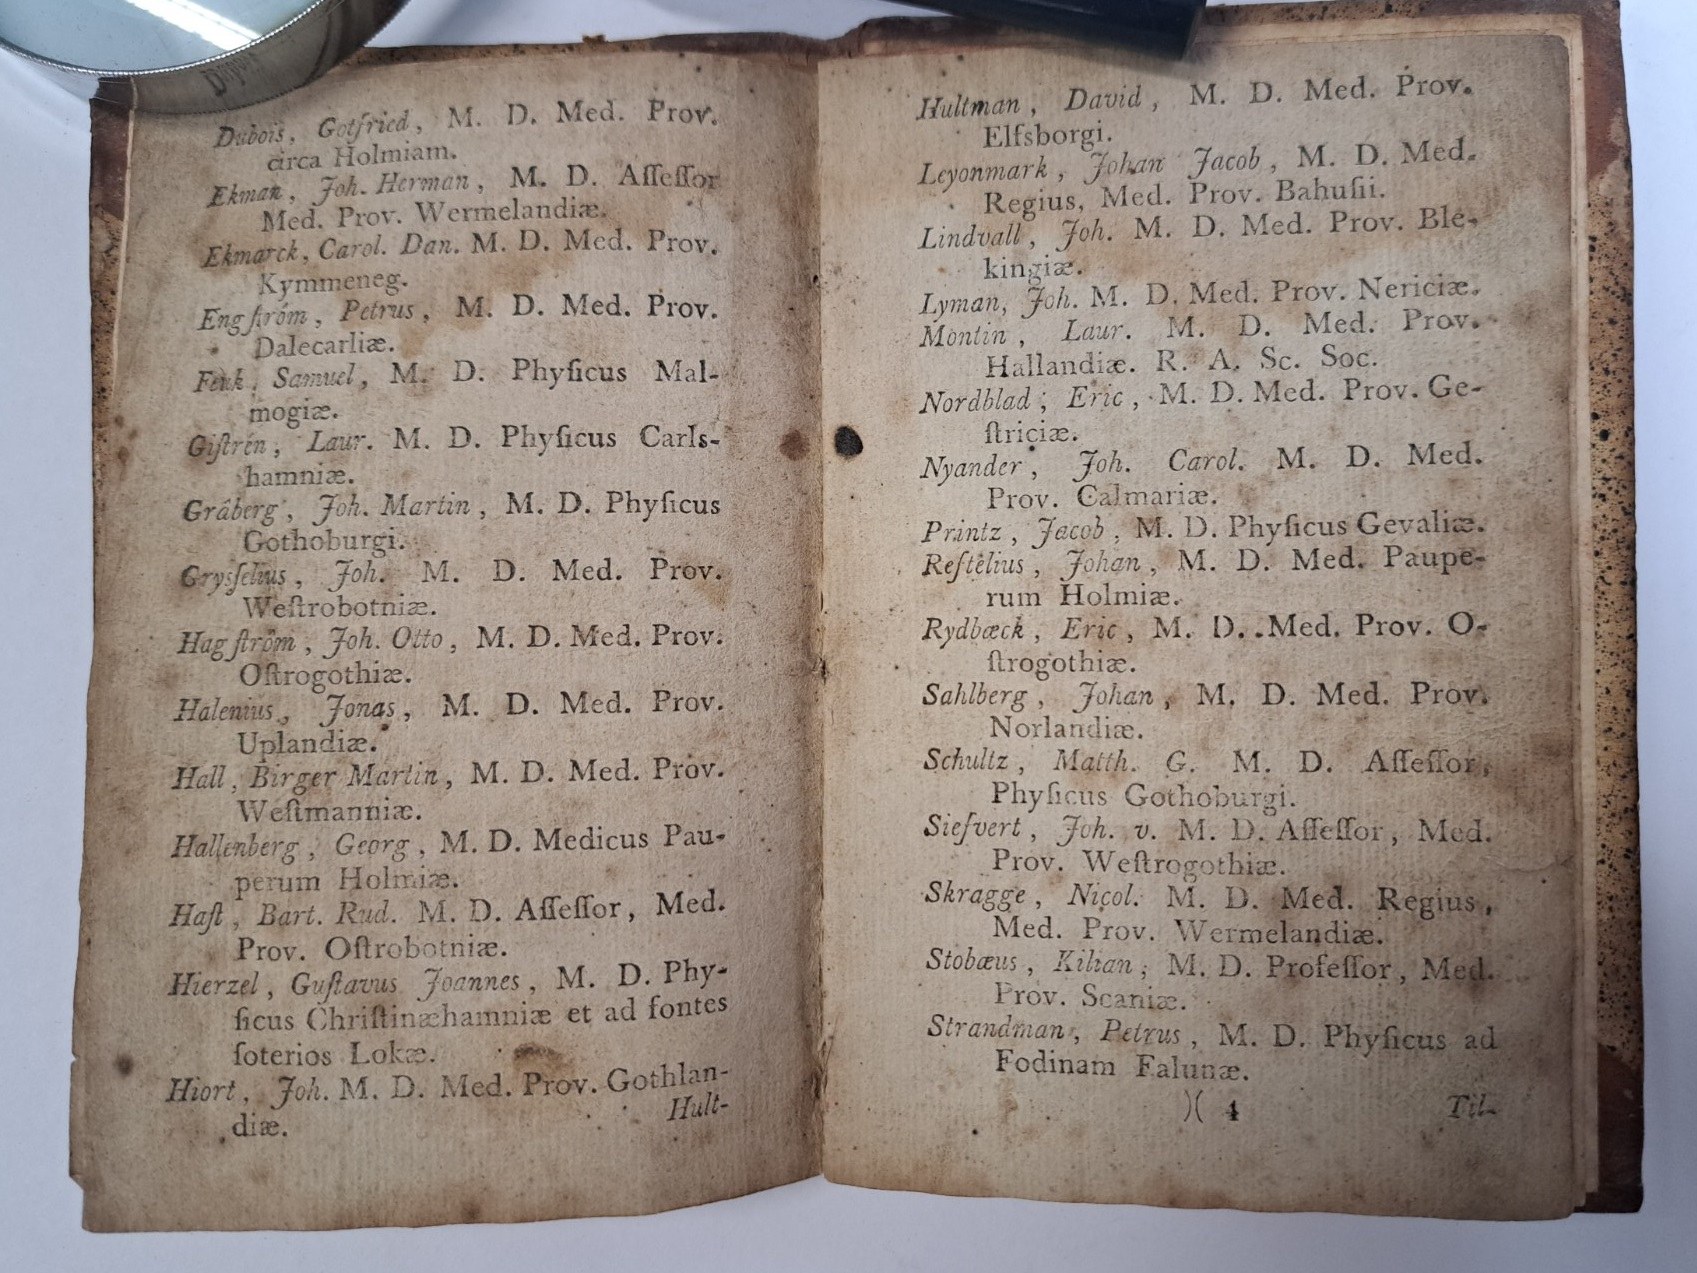 Dubois, Gotfried, M. D. Med. Prov.
circa Holmiam.
Ekman, Joh. Herman, M. D. Aſſeſſor
Med. Prov. Wermelandiæ.
Ekmarck, Carol. Dan. M. D. Med. Prov.
Kymmeneg.
Engſtröm, Petrus, M. D. Med. Prov.
Dalecarliæ.
Samuel, M. D. Phyſicus Mal-
mogiæ.
Giſtrén, Laur. M. D. Phyſicus Carls-
hamniæ.
Gråberg, Joh. Martin, M. D. Phyſicus
Gothoburgi.
Grysſelius, Joh. M. D. Med. Prov.
Weſtrobotniæ.
Hagſtröm, Joh. Otto, M. D. Med. Prov.
Oſtrogothiæ.
Halenius, Jonas, M. D. Med. Prov.
Uplandiæ.
Hall, Birger Martin, M. D. Med. Prov.
Weſtmanniæ.
Hallenberg, Georg, M. D. Medicus Pau-
perum Holmiæ.
Haſt, Bart. Rud. M. D. Aſſeſſor, Med.
Prov. Oſtrobotniæ.
Hierzel, Guſtavus Joannes, M. D. Phy-
ſicus Chriſtinæhamniæ et ad fontes
ſoterios Lokæ.
Hiort, Joh. M. D. Med. Prov. Gothlan-
diæ.
Hult-
Hultman, David, M. D. Med. Prov.
Elfsborgi.
Leyonmark, Johan Jacob, M. D. Med.
Regius, Med. Prov. Bahuſii.
Lindvall, Joh. M. D. Med. Prov. Ble-
kingiæ.
Lyman, Joh. M. D. Med. Prov. Nericiæ.
Montin, Laur. M. D. Med. Prov.
Hallandiæ. R. A. Sc. Soc.
Nordblad, Eric, M. D. Med. Prov. Ge-
ſtriciæ.
Nyander, Joh. Carol. M. D. Med.
Prov. Calmariæ.
Printz, Jacob, M. D. Phyſicus Gevaliæ.
Reſtelius, Johan, M. D. Med. Paupe-
rum Holmiæ.
Rydbæck, Eric, M. D. Med. Prov. O-
ſtrogothiæ.
Sahlberg, Johan, M. D. Med. Prov.
Norlandiæ.
Schultz, Matth. G. M. D. Aſſeſſor,
Phyſicus Gothoburgi.
Sieſvert, Joh. v. M. D. Aſſeſſor, Med.
Prov. Weſtrogothiæ.
Skragge, Nicol. M. D. Med. Regius,
Med. Prov. Wermelandiæ.
Stobæus, Kilian, M. D. Profeſſor, Med.
Prov. Scaniæ.
Strandman, Petrus, M. D. Phyſicus ad
Fodinam Falunæ.
)( 4 Til-